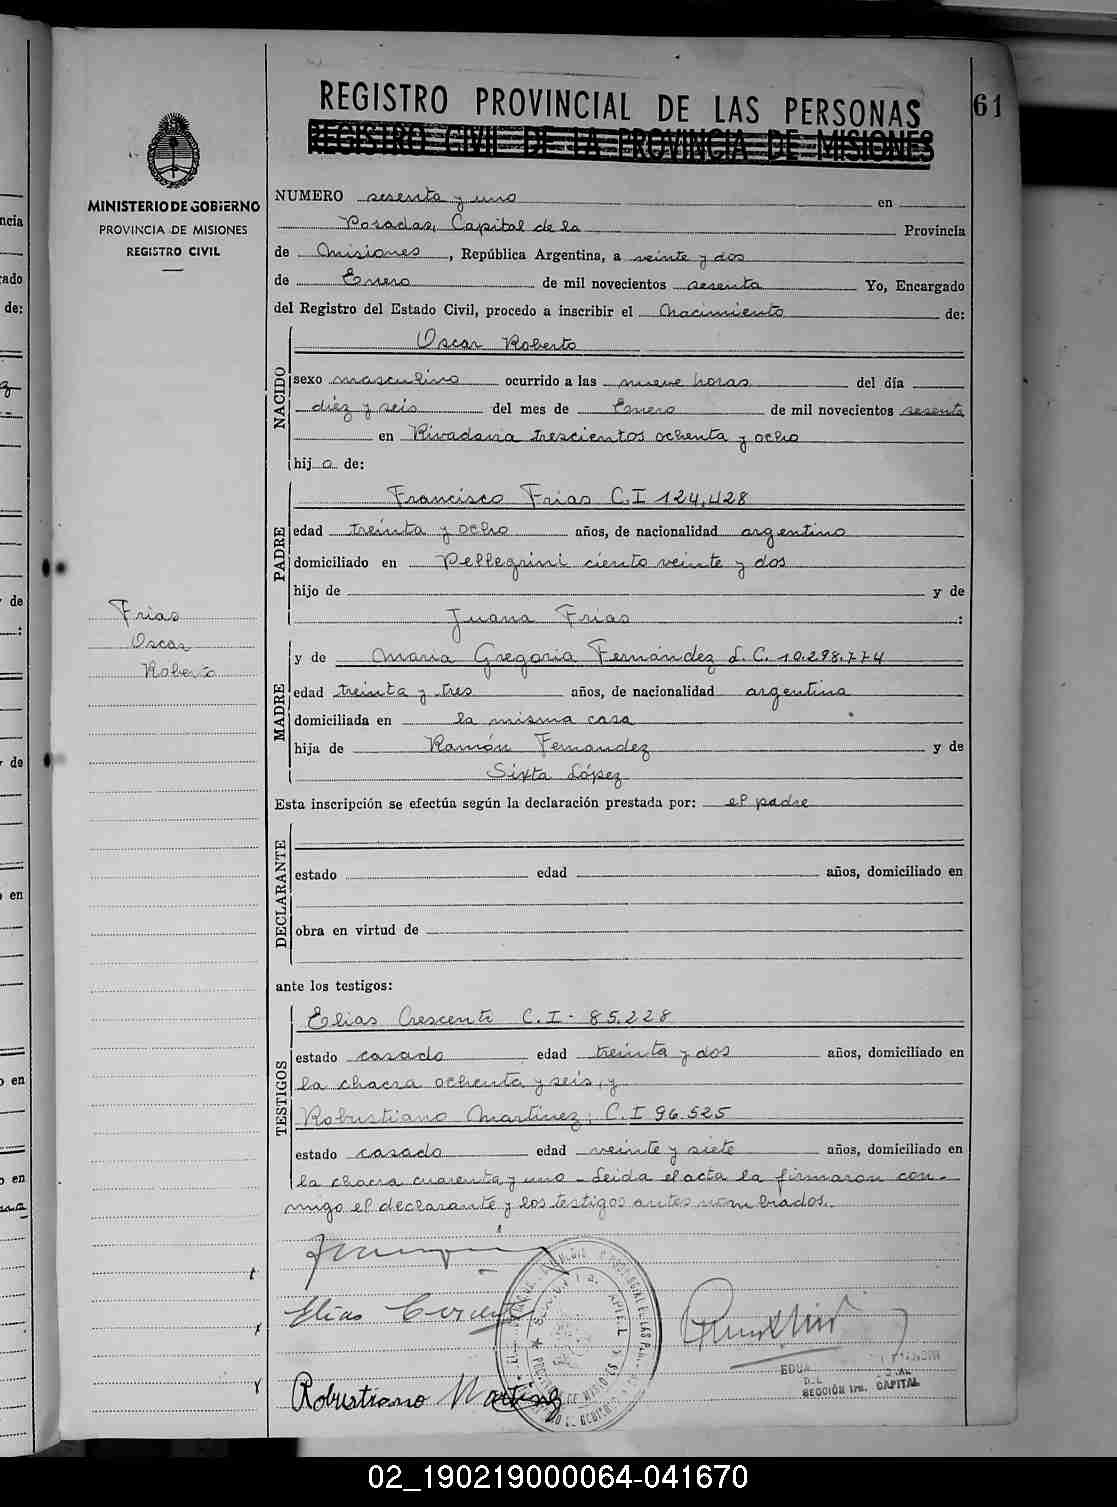 REGISTRO PROVINCIAL DE LAS PERSONAS
61
REGISTRO CIVIL DE LA PROVINCIA DE MISIONES
MINISTERIO DE GOBIERNO
PROVINCIA DE MISIONES
REGISTRO CIVIL
NUMERO sesenta y uno en
Posadas, Capital de la Provincia
de Misiones, República Argentina, a veinte y dos
de Enero de mil novecientos sesenta Yo, Encargado
del Registro del Estado Civil, procedo a inscribir el Nacimiento de:
NACIDO
Oscar Roberto
sexo masculino ocurrido a las nueve horas del día
diéz y seis del mes de Enero de mil novecientos sesenta
en Rivadavia trescientos ochenta y ocho
hij o de:
PADRE
Francisco Frias C.I 124,428
edad treinta y ocho años, de nacionalidad argentino
domiciliado en Pellegrini ciento veinte y dos
hijo de y de
Juana Frias :
Frias
Oscar
Roberto
MADRE
y de Maria Gregoria Fernández L.C. 10.298.774
edad treinta y tres años, de nacionalidad argentina
domiciliada en la misma casa
hija de Ramón Fernandez y de
Sixta López
Esta inscripción se efectúa según la declaración prestada por: el padre
DECLARANTE
estado edad años, domiciliado en
obra en virtud de
ante los testigos:
TESTIGOS
Elias Crescente C.I - 85.228
estado casado edad treinta y dos años, domiciliado en
la chacra ochenta y seis, y
Robustiano Martinez; C.I 96.525
estado casado edad veinte y siete años, domiciliado en
la chacra cuarenta y uno - Leida el acta la firmaron con-
migo el declarante y los testigos antes nombrados.
Elias Crescente
Robustiano Martinez
SECCIÓN 1ra. CAPITAL
02_190219000064-041670